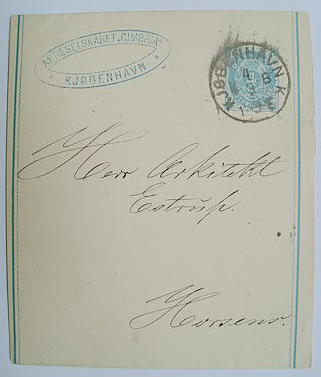 AKTIESELSKABET „CIMBRIA"
* KJØBENHAVN *
KJØBENHAVN K.
Herr Arkitekt
Estrup.
Horsens.